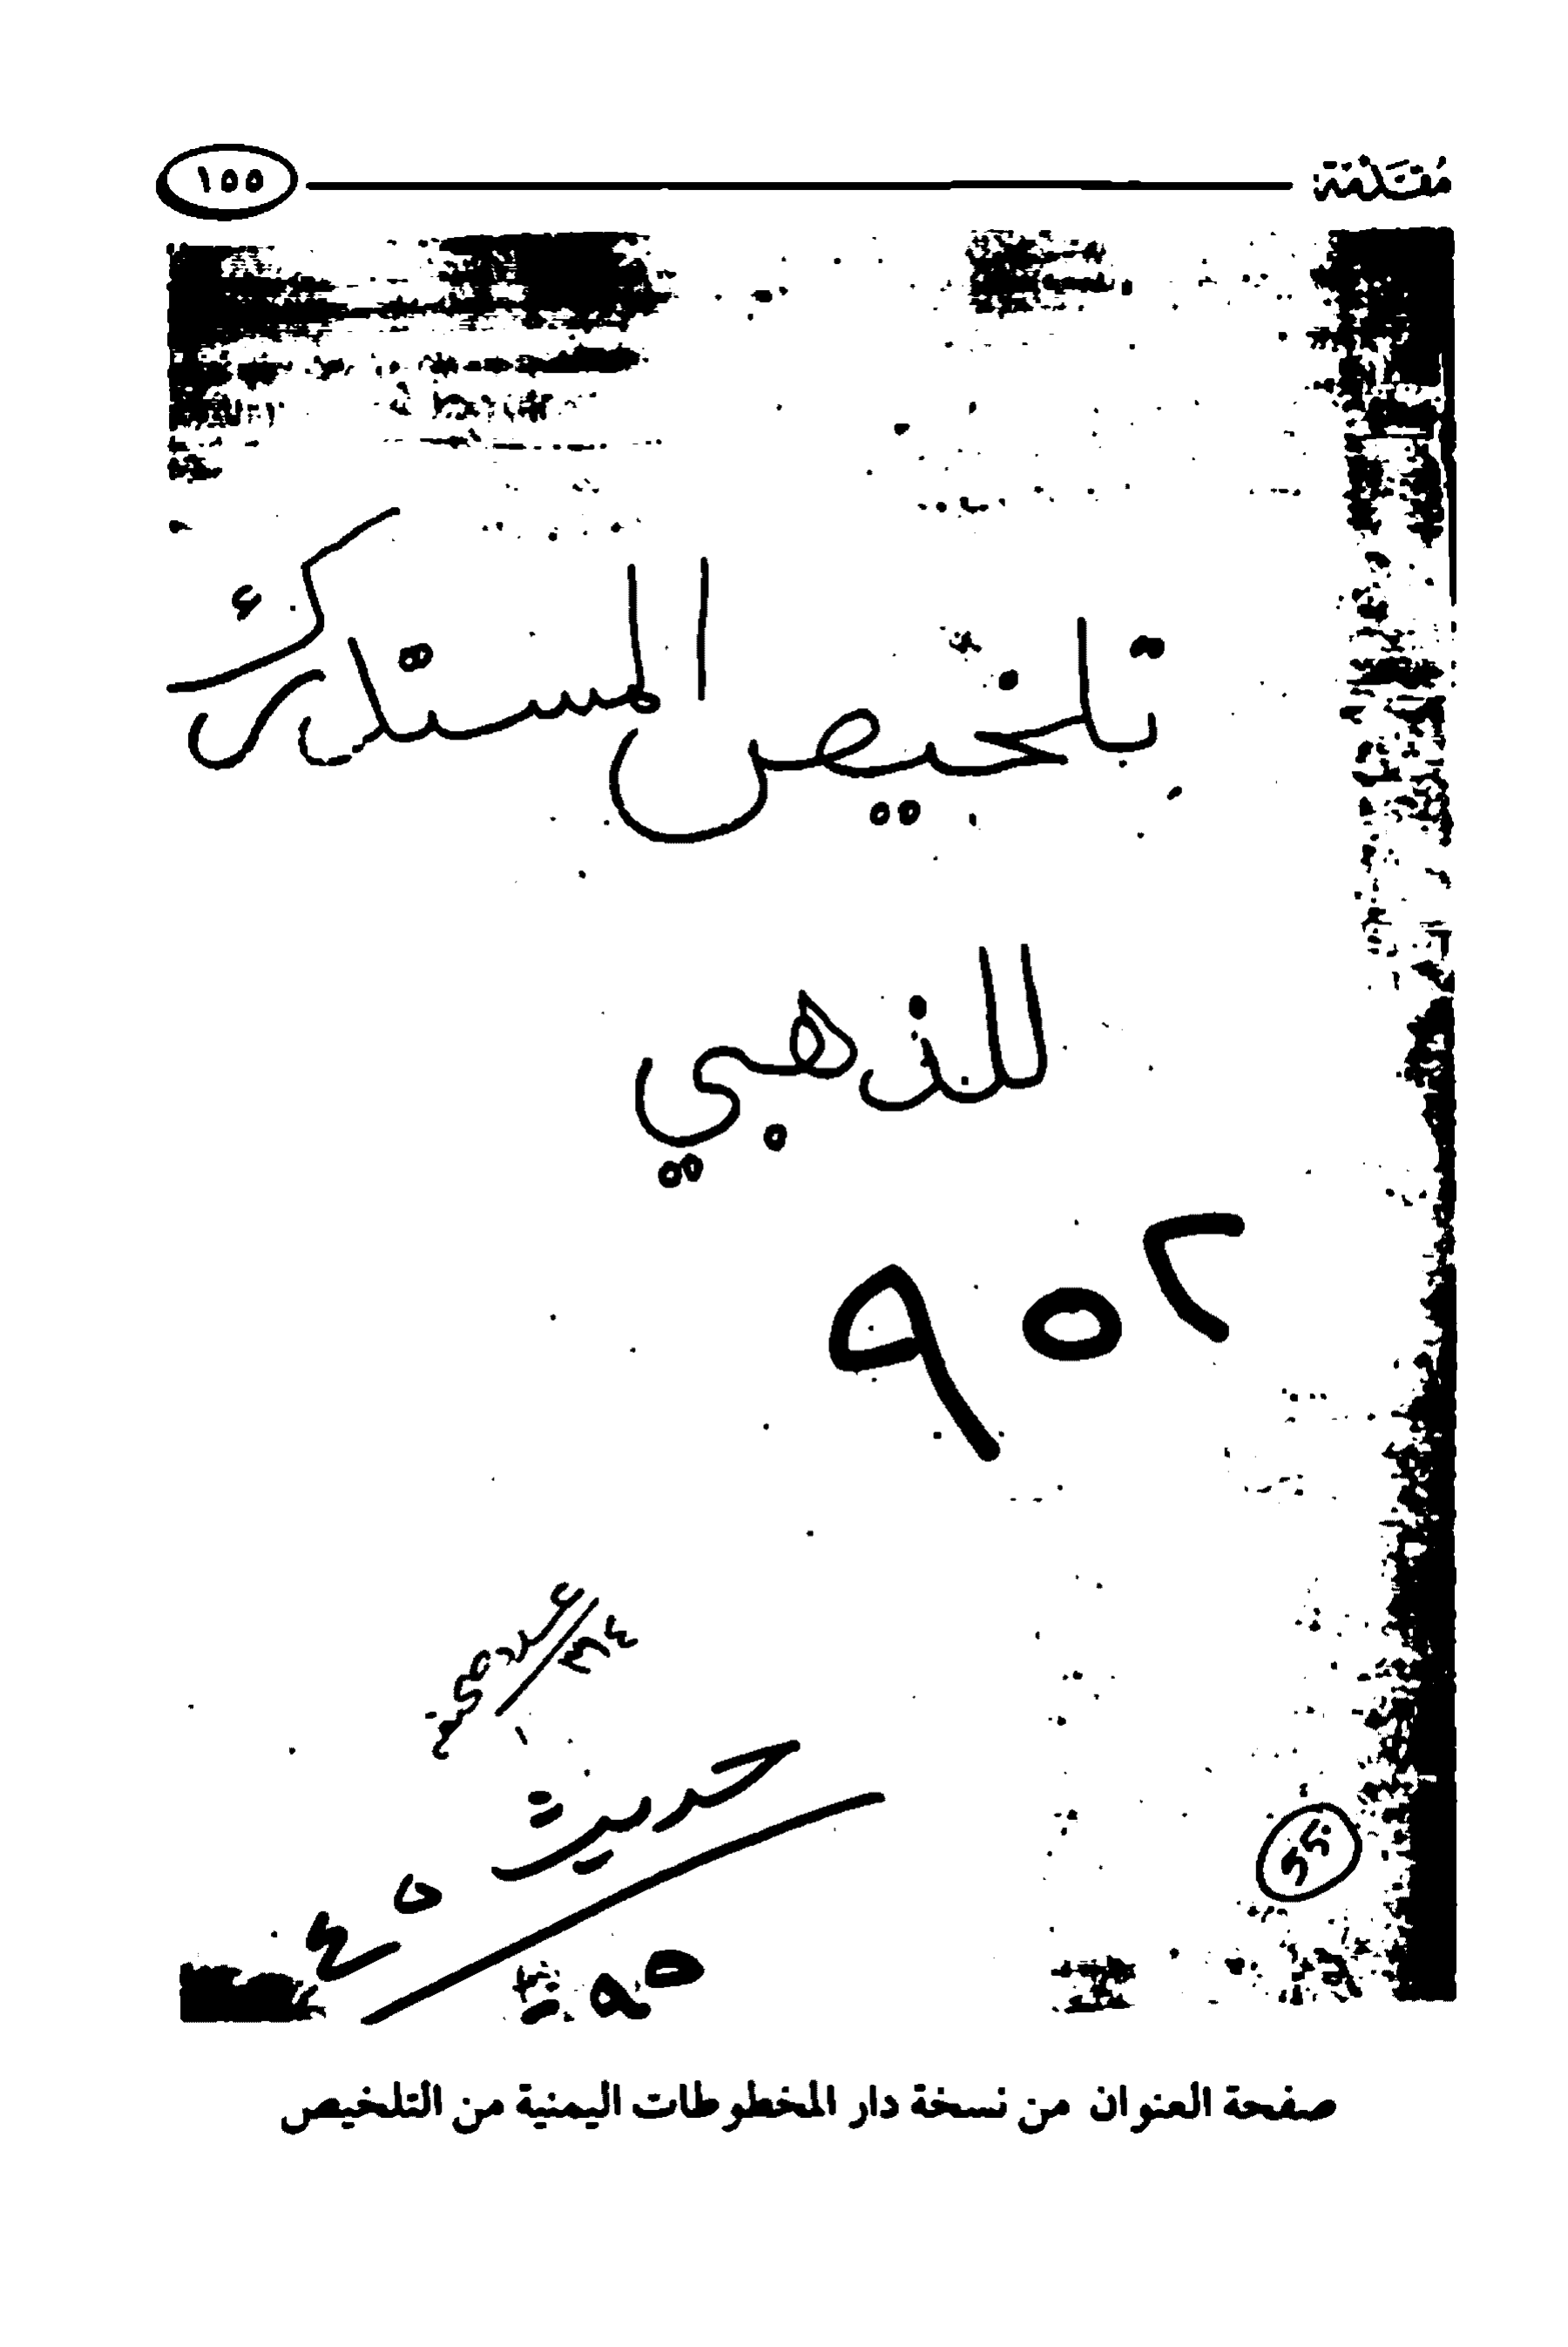 مقدمة
١٥٥
تلخيص المستدرك
للذهبي
٩٥٢
حديث
صفحة العنوان من نسخة دار المخطوطات اليمنية من التلخيص